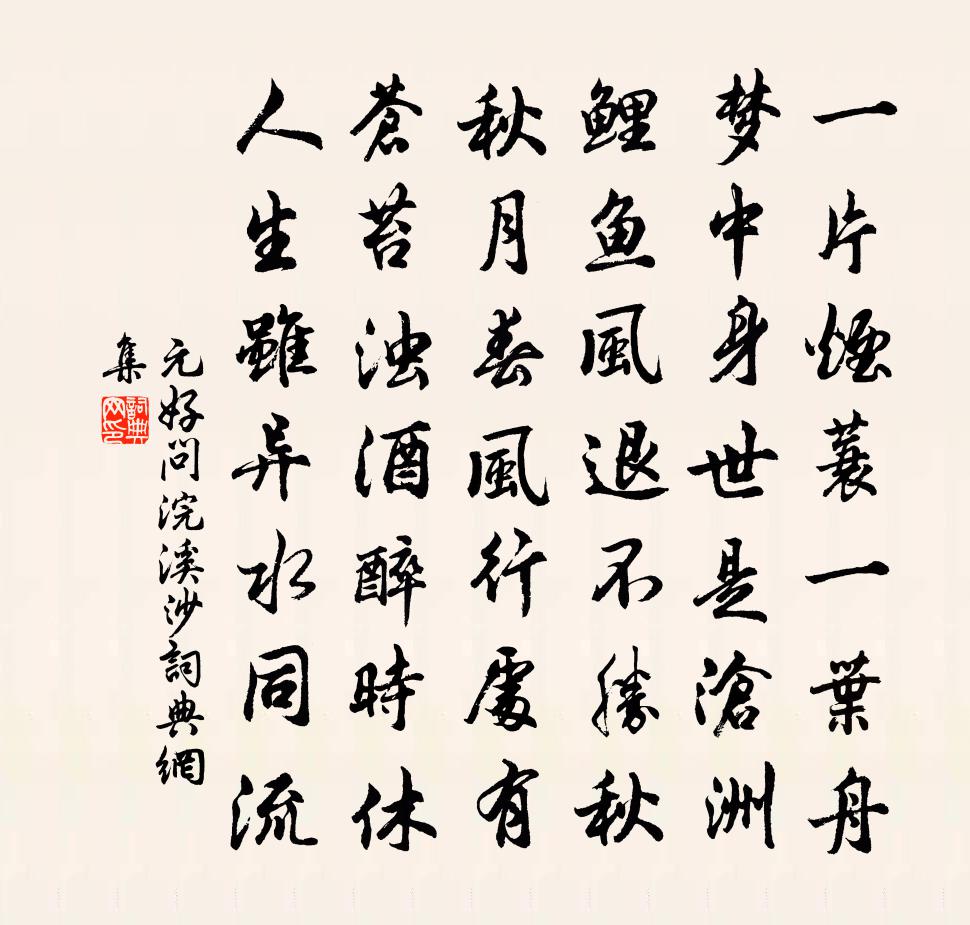 一片煙蓑一葉舟
梦中身世是滄洲
鯉鱼風退不勝秋
秋月春風行處有
蒼苔浊酒醉時休
人生雖异水同流
元好问浣溪沙詞典網
集
詞典网印